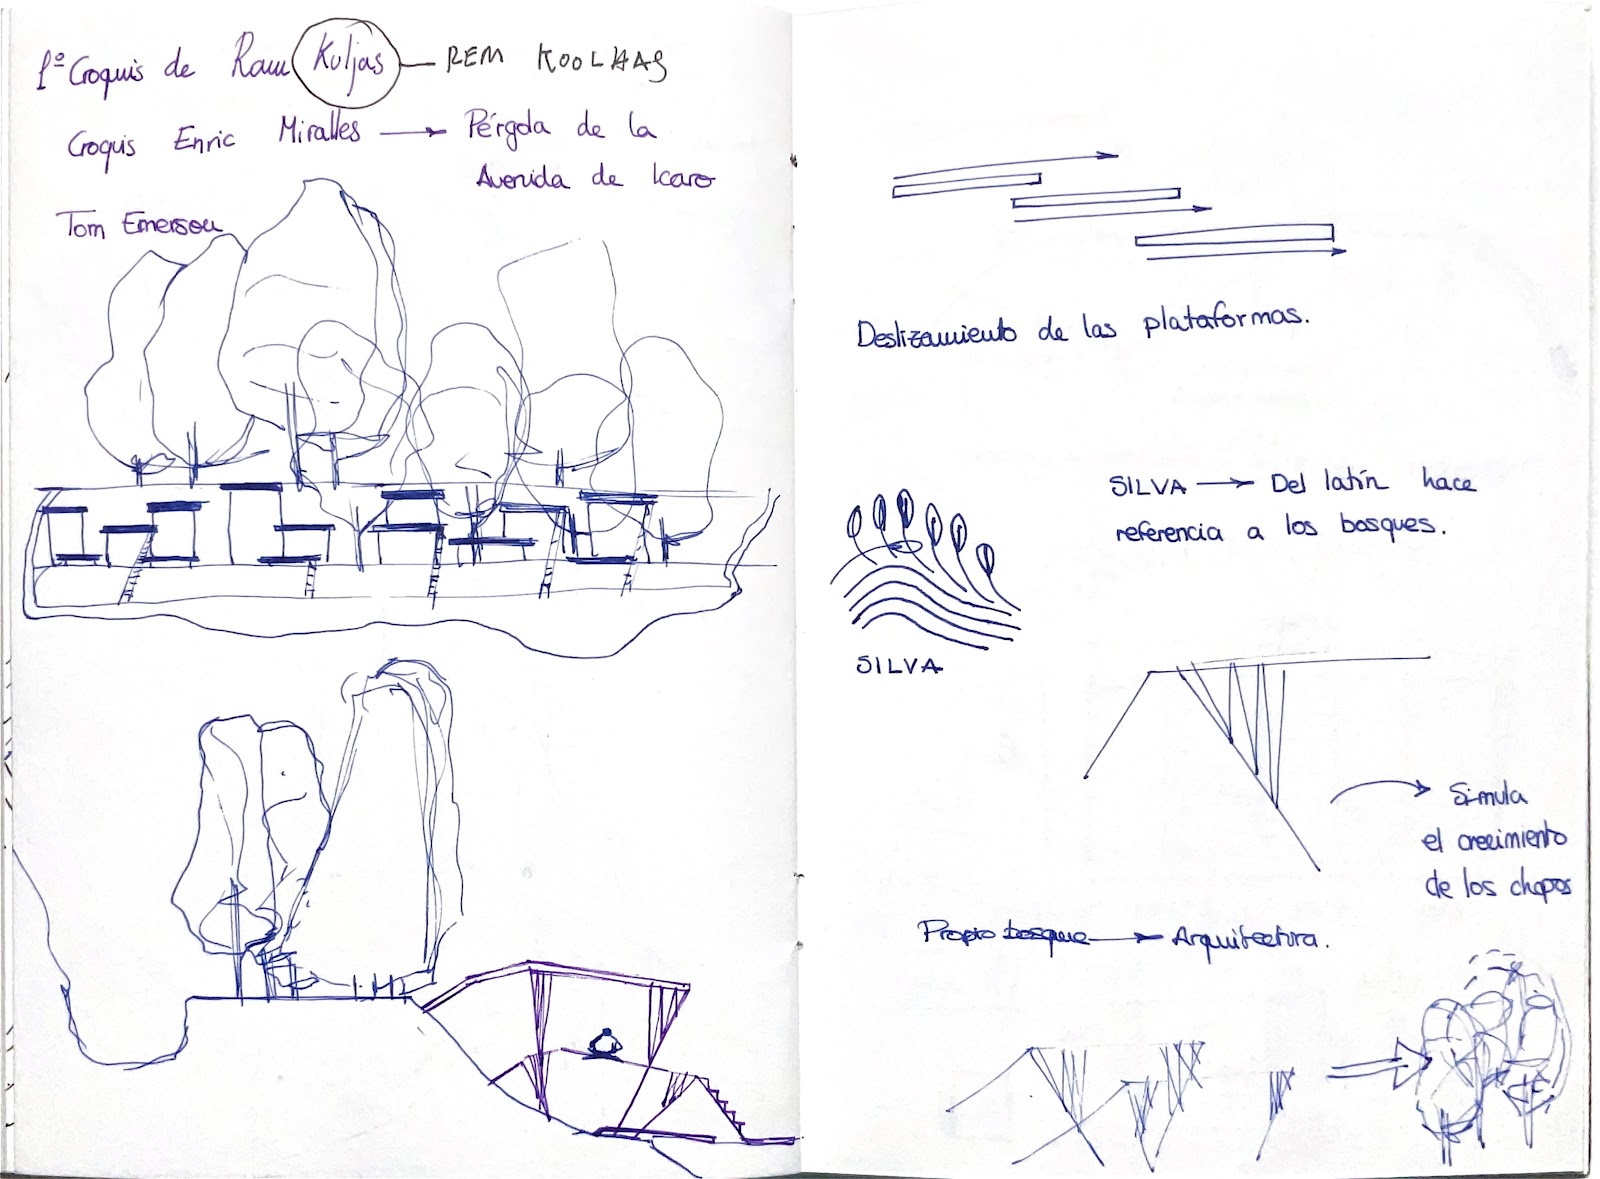 1º Croquis de Ram Kuljas — REM KOOLHAS
Croquis Enric Miralles → Pérgola de la
Avenida de Icaro
Tom Emerson
Deslizamiento de las plataformas.
SILVA → Del latín hace
referencia a los bosques.
SILVA
Simula
el crecimiento
de los chopos
Propio bosque → Arquitectura.